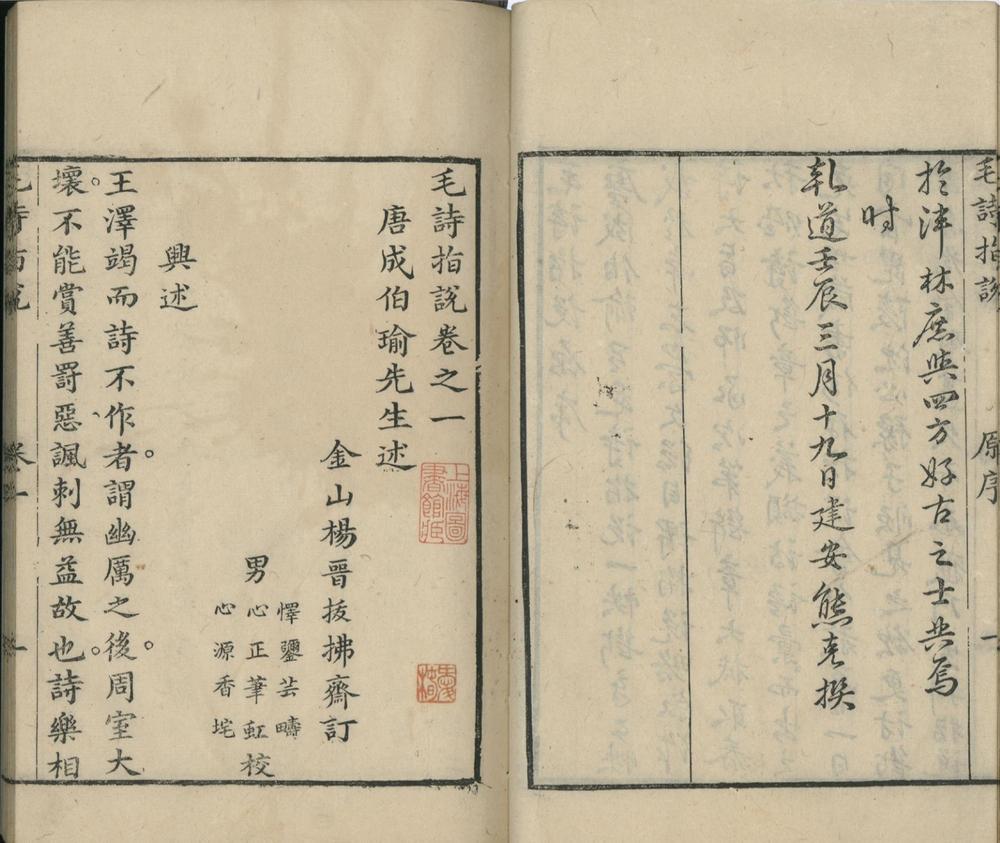 毛詩指說 原序 一
於泮林庶與四方好古之士共焉
时
乹道壬辰三月十九日建安熊克撰
毛詩指說卷之一
唐成伯瑜先生述
上海圖書館藏
金山楊晉抜拂齋訂
懌甖芸疇
男心正筆虹校
心源香垞
興述
王澤竭而詩不作者。謂幽厲之後。周室大
壞。不能賞善罰惡、諷刺無益故也。詩樂相
毛詩指說 卷一 一